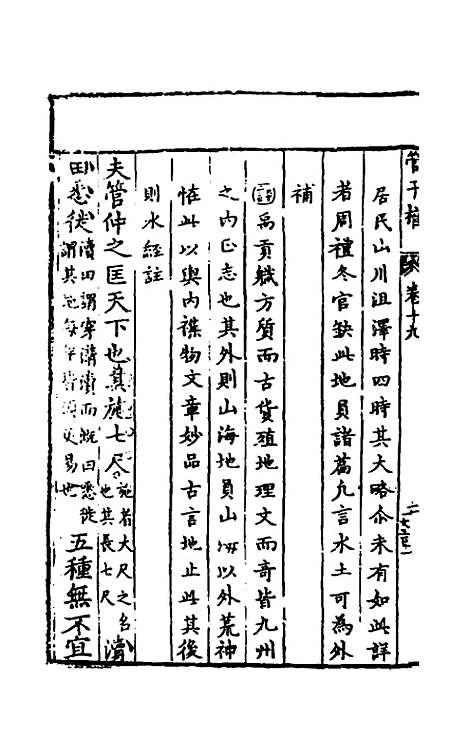 管子榷
卷十九
居民山川沮澤時四時其大略亦未有如此詳
者周禮冬官缺此地員諸篇凡言水土可為外
補
禹貢職方質而古貨殖地理文而奇皆九州
之内正志也其外則山海地員山海以外荒神
怪此以與内襍物文章妙品古言地止此其後
則水經註
夫管仲之匡天下也其施七尺施者大尺之名也其長七尺瀆
田悉徙瀆田謂穿溝瀆而溉田悉徙謂其地每年皆須更易也五種無不宜